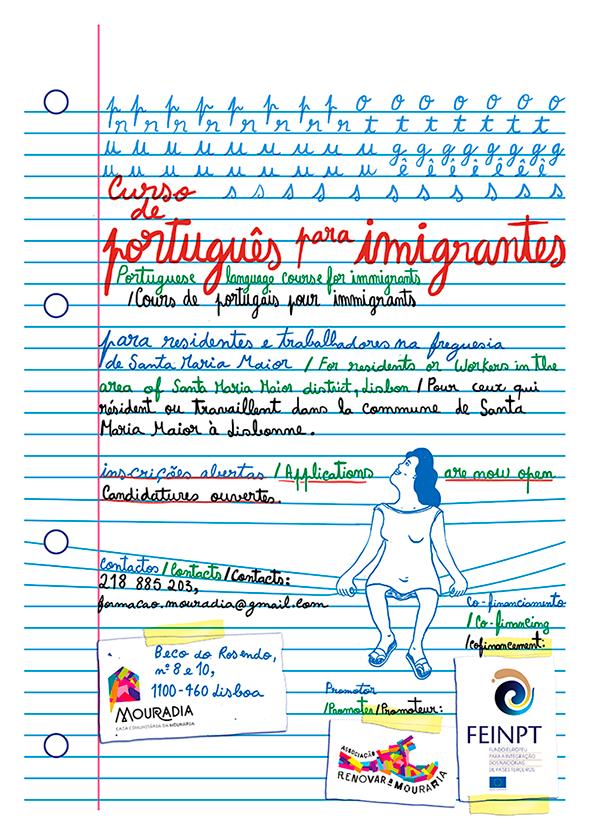 p p p p p p p p o o o o o o o
r r r r r r r r r t t t t t t t
u u u u u u u u u g g g g g g g g
u u u u u u u u u ê ê ê ê ê ê
Curso s s s s s s s s s s s s
de
português para imigrantes
Portuguese language course for immigrants
/Cours de portugais pour immigrants
para residentes e trabalhadores na freguesia
de Santa Maria Maior / For residents or Workers in the
area of Santa Maria Maior district, Lisbon / Pour ceux qui
résident ou travaillent dans la commune de Santa
Maria Maior à Lisbonne.
inscrições abertas / Applications are now open
Candidatures ouvertes.
Contactos / Contacts / Contacts:
218 885 203,
formacao.mouradia@gmail.com
Co-financiamento
/ Co-financing
/cofinancement:
Beco do Rosendo,
nº 8 e 10,
1100-460 Lisboa
MOURADIA
CASA COMUNITÁRIA DA MOURARIA
Promotor
/Promotes/Promoteur:
ASSOCIAÇÃO
RENOVAR A MOURARIA
FEINPT
FUNDO EUROPEU
PARA A INTEGRAÇÃO
DOS NACIONAIS
DE PAÍSES TERCEIROS